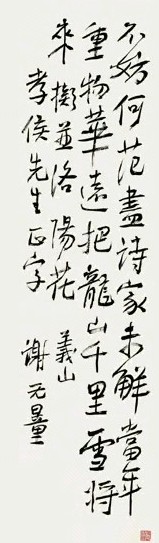 不妨何范尽詩家未解當年
重物華遠把龍山千里雪將
來擬並洛陽花 義山
孝侯先生正字 謝无量